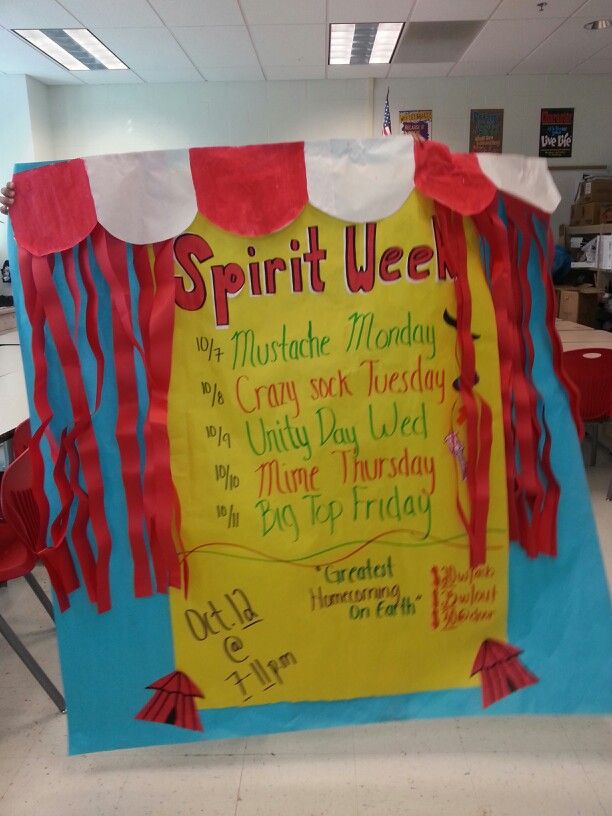 Live Life
Spirit Week
10/7 Mustache Monday
10/8 Crazy sock Tuesday
10/9 Unity Day Wed
10/10 Mime Thursday
10/11 Big Top Friday
"Greatest
Homecoming
On Earth"
Oct. 12
@
7-11pm